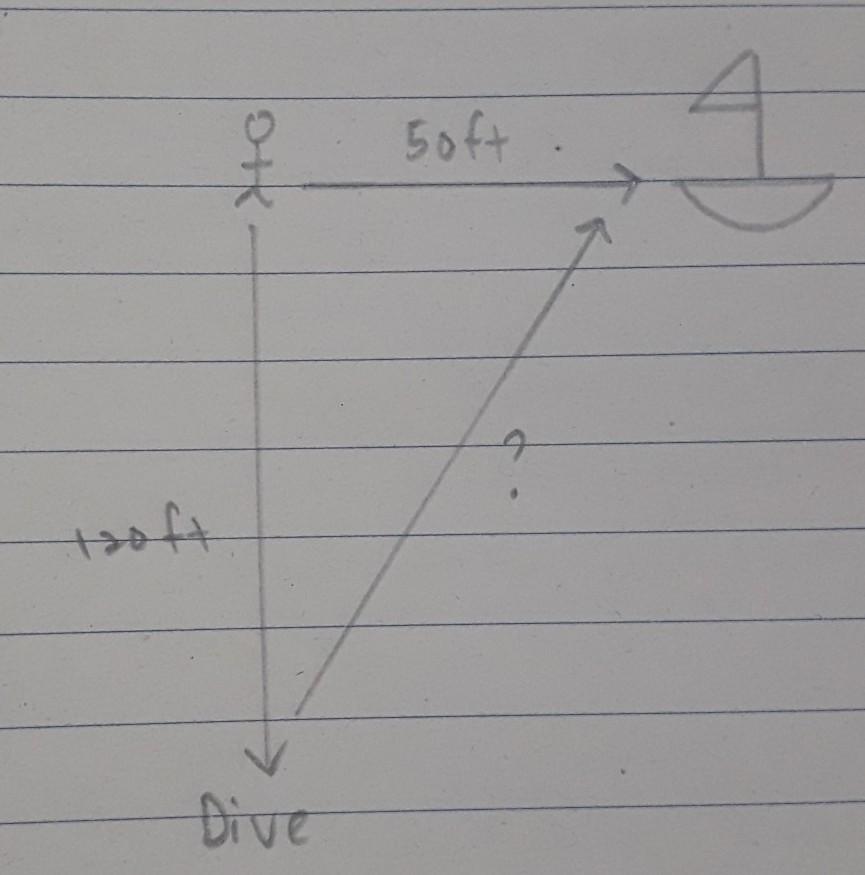 50ft
?
120ft
Dive